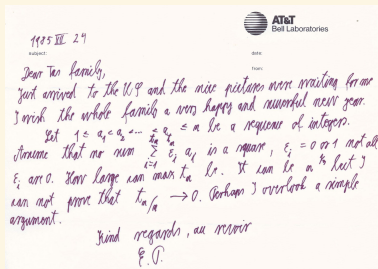 AT&T
Bell Laboratories
1985 XII 24
subject:
date:
from:
Dear Tas family,
Just arrived to the US and the nice pictures were waiting for me
I wish the whole family a very happy and successful new year.
Let 1 ≤ a₁ < a₂ < ... < a_{tₙ} ≤ n be a sequence of integers.
Assume that no sum Σ_{i=1}^{tₙ} εᵢ aᵢ is a square, εᵢ = 0 or 1 not all
εᵢ are 0. How large can max tₙ be. It can be n^{1/3} but I
can not prove that tₙ/n → 0. Perhaps I overlook a simple
argument.
Kind regards, au revoir
E. P.